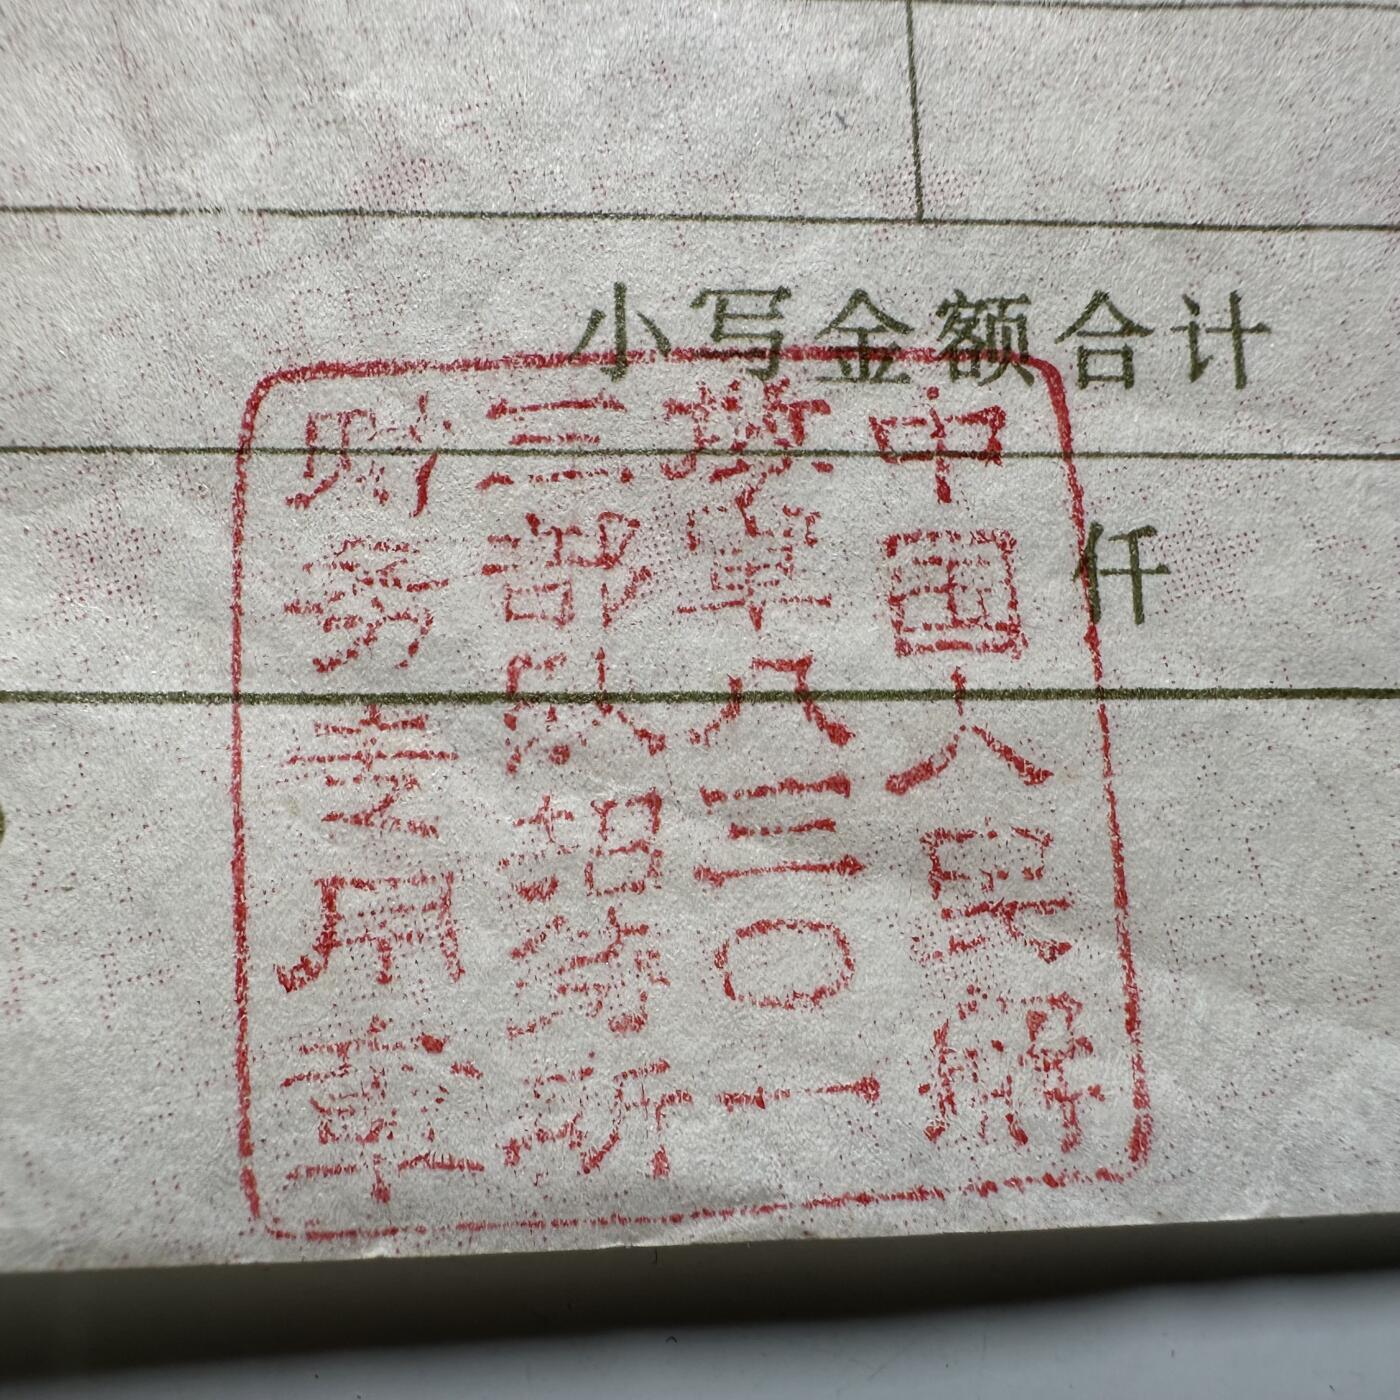 小写金额合计
仟
中国人民解
放军八三〇一
三部队招待所
财务